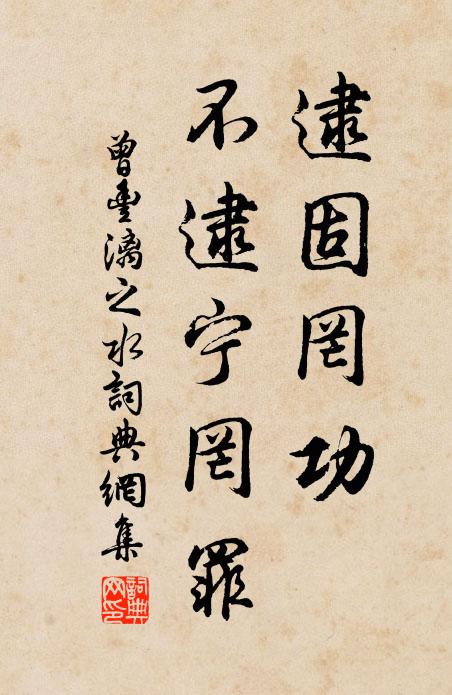 逮固罔功
不逮宁罔罪
曾豊漓之水詞典網集
詞典網印